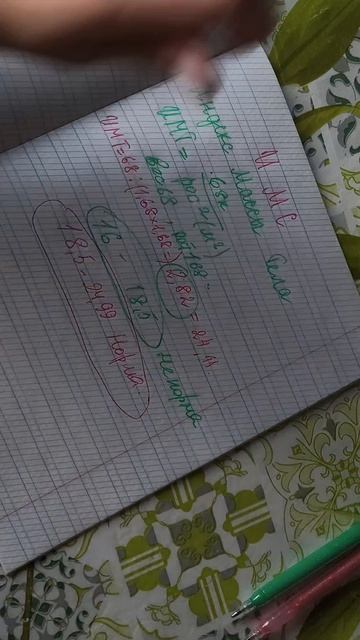 И М С
Индекс Массы Тела
ИМТ = вес
рост² (м²)
вес 68, рост 168
ИМТ=68:(1,68×1,68=) 2,82 = 24,11
16 - 18,5 Не норма
18,5 - 24,99 Норма